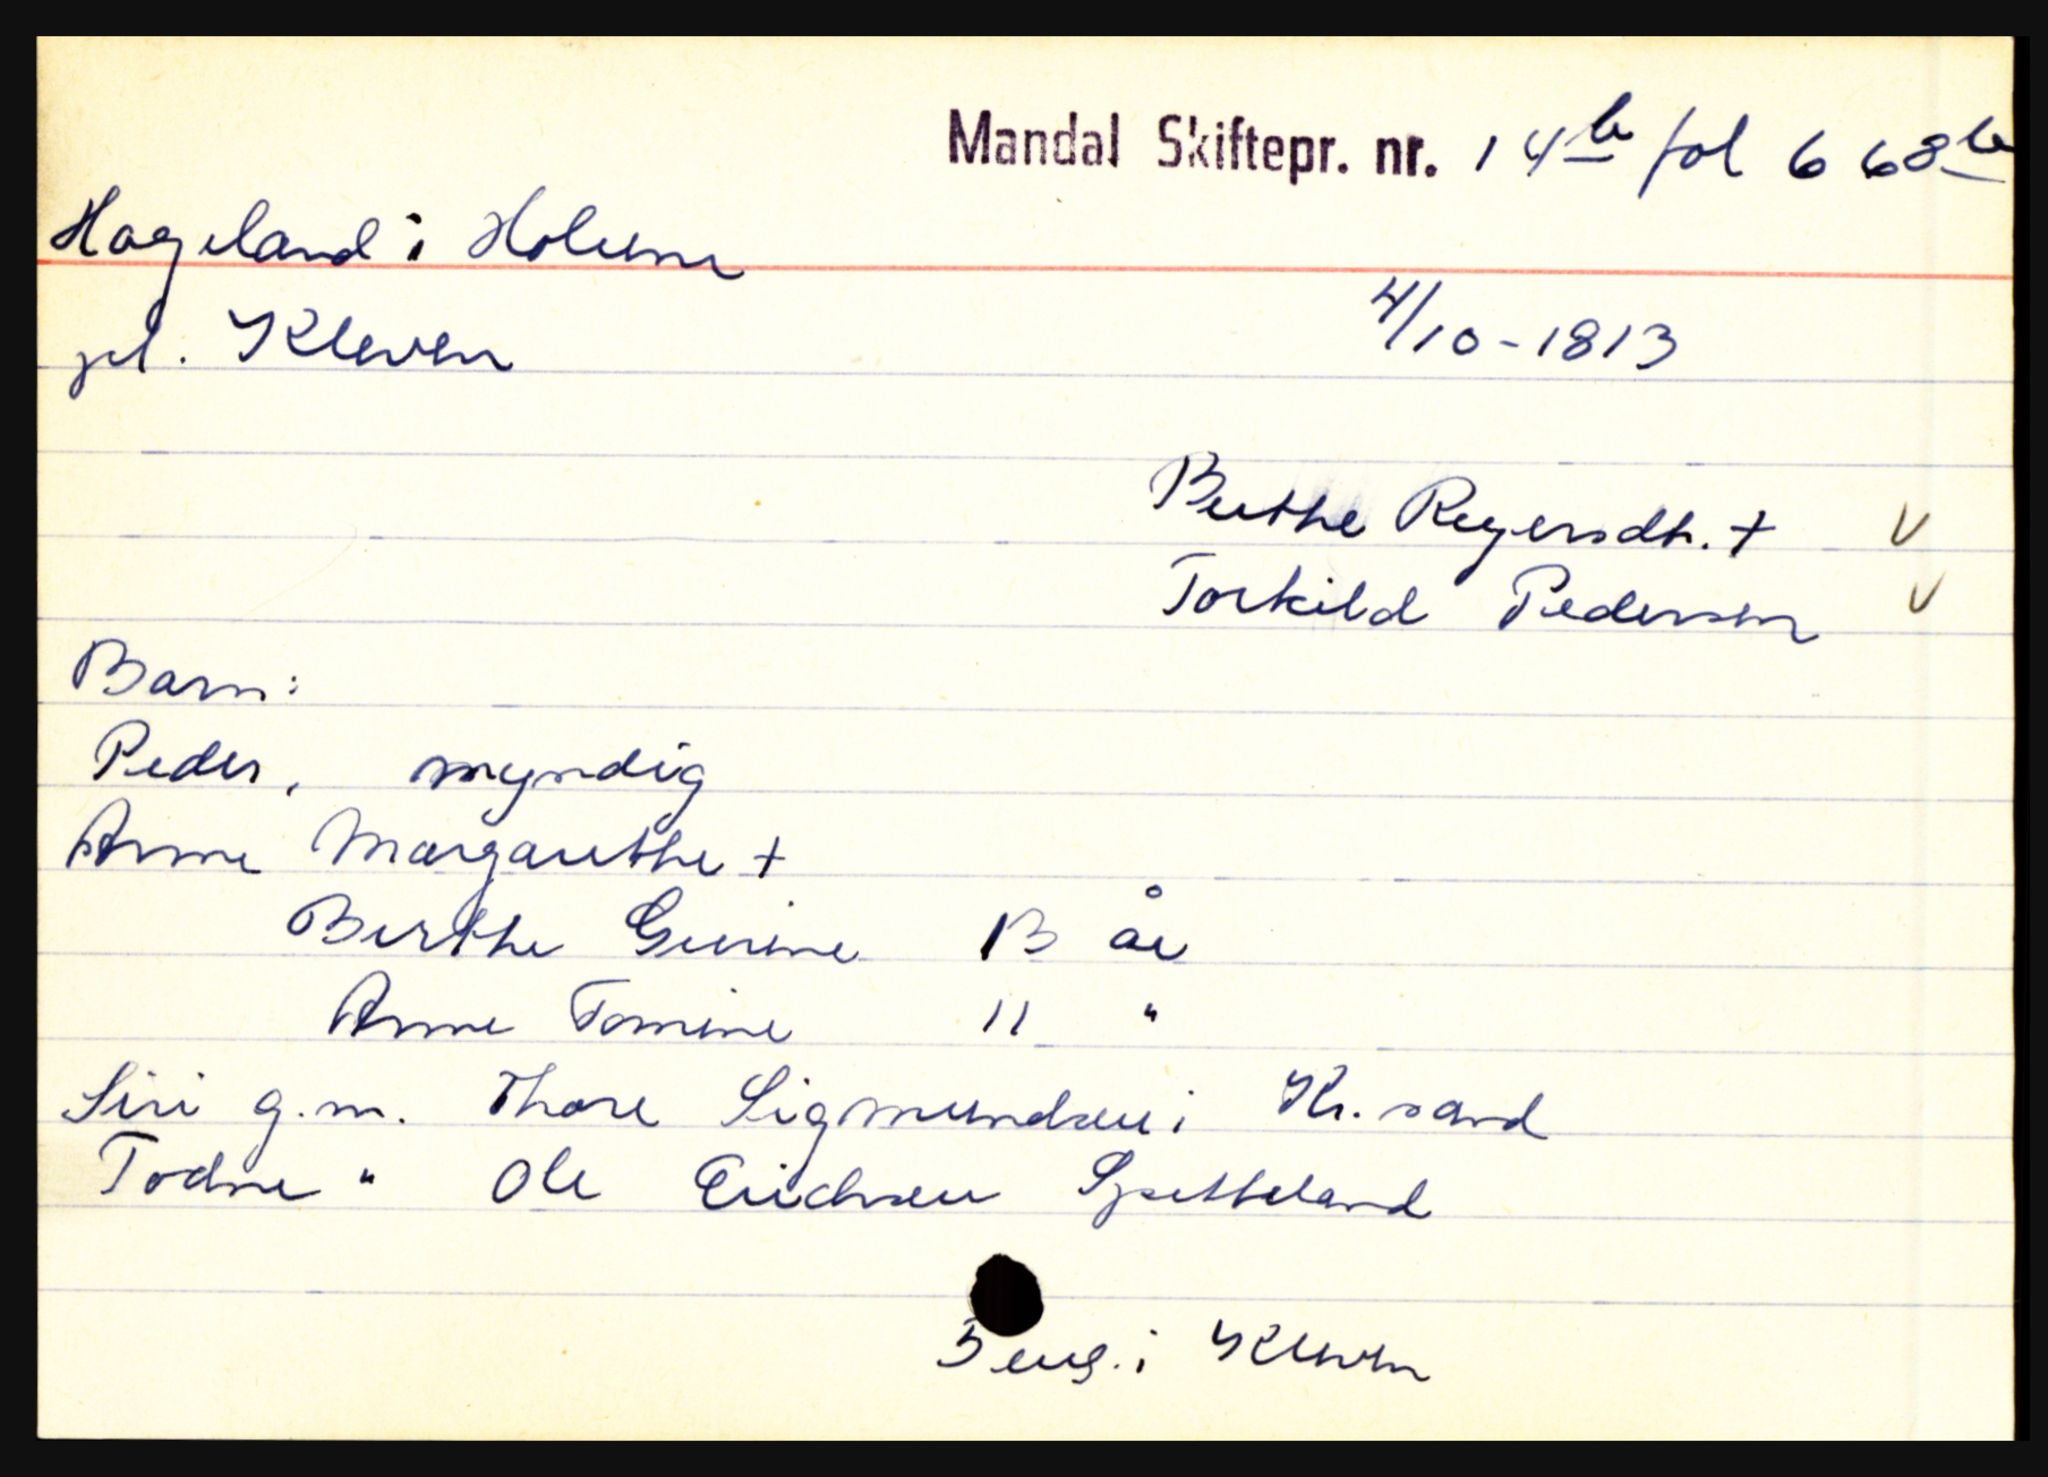 Mandal Skiftepr. nr. 14b fol 668b
Hageland i Holume
pl. Kleven
4/10-1813
Berthe Reyersdtr. +
Torkild Pedersen
Barn:
Peder, myndig
Anne Margarethe +
Berthe Gurine 13 år
Anne Tomine 11 "
Siri g.m. Thore Sigmundsen i Kr.sand
Todne " Ole Erichsen Spetteland
5 eng. i Kleven